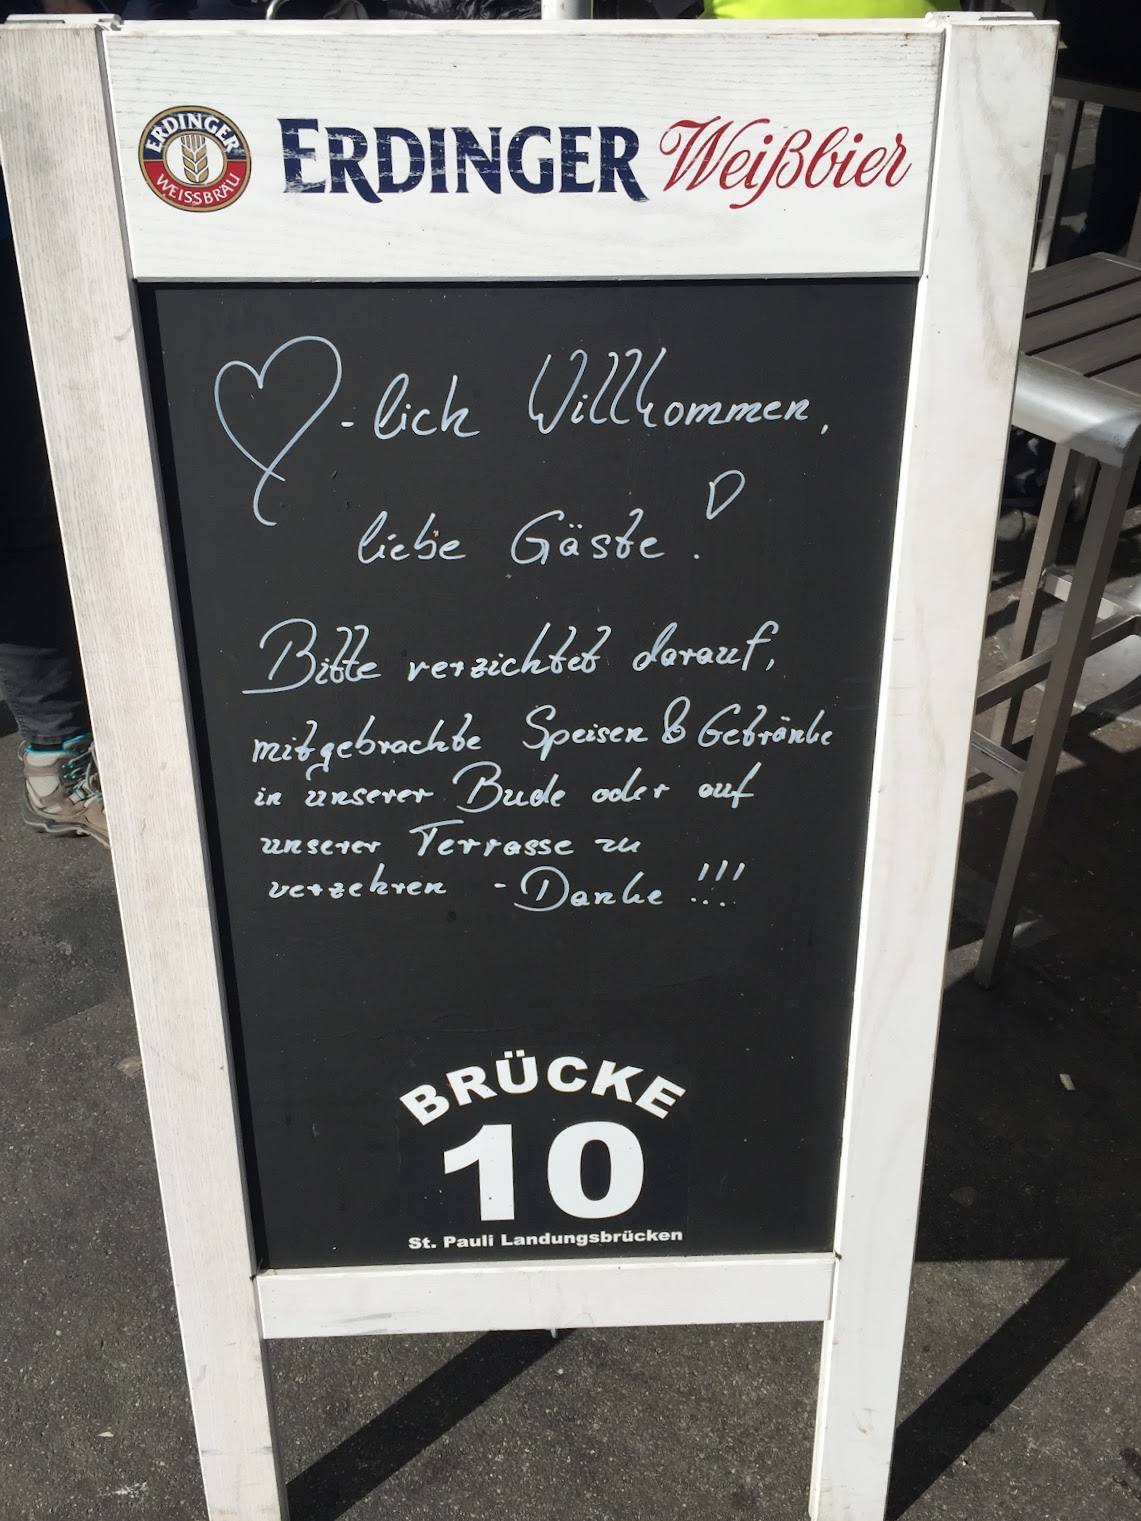 ERDINGER
WEISSBRÄU
ERDINGER Weißbier
-lich Willkommen,
liebe Gäste!
Bitte verzichtet darauf,
mitgebrachte Speisen & Getränke
in unserer Bude oder auf
unserer Terrasse zu
verzehren - Danke !!!
BRÜCKE
10
St. Pauli Landungsbrücken